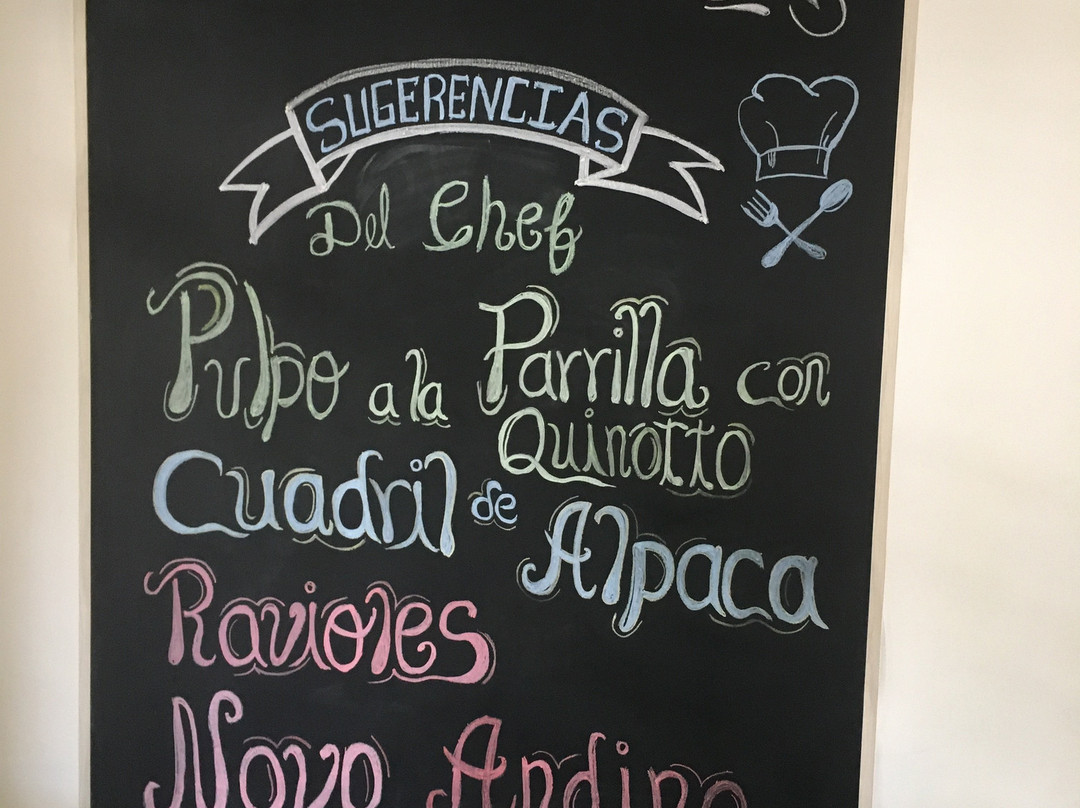 SUGERENCIAS
Del Chef
Pulpo a la Parrilla con
Quinotto
Cuadril de Alpaca
Ravioles
Novo Andino